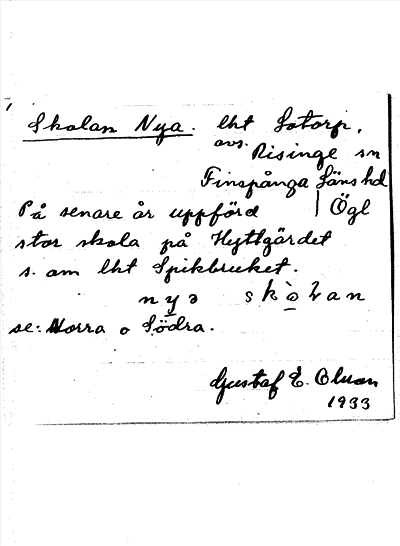 Skolan Nya. lht Sotorp,
avs. Risinge sn
Finspånga Läns hd
På senare år uppförd | Ögl
stor skola på Hyttgärdet
s. om lht Spikbruket.
nyə skὼlan
se: Norra o Södra.
Gustaf E. Olsson
1933